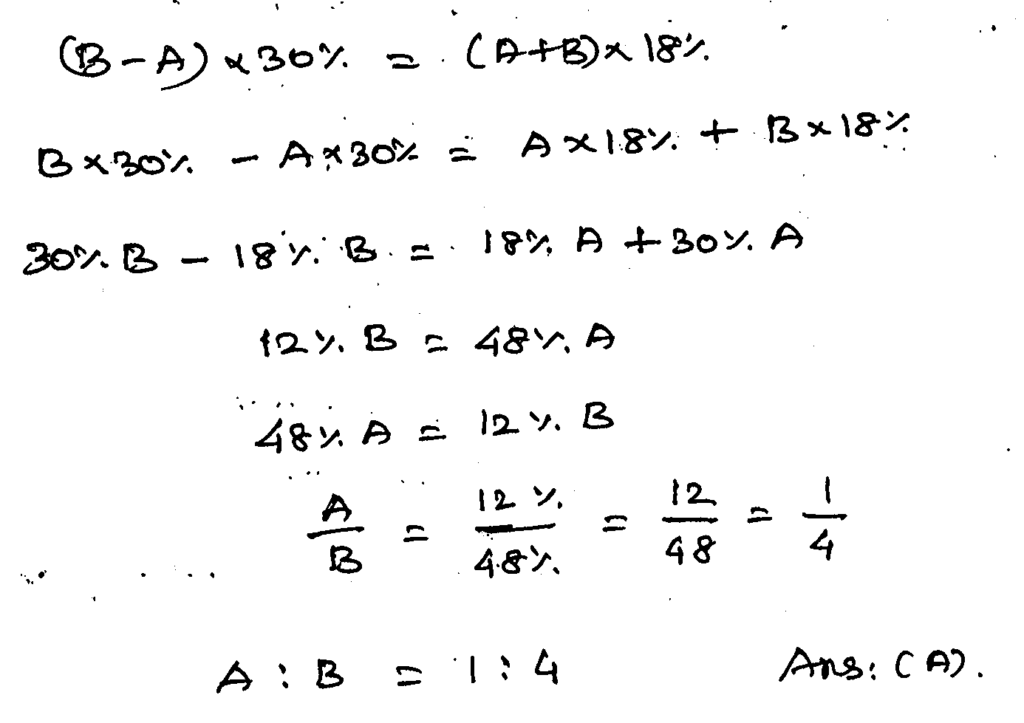 (B-A) × 30% = (A+B) × 18%
B × 30% - A × 30% = A × 18% + B × 18%
30% B - 18% B = 18% A + 30% A
12% B = 48% A
48% A = 12% B
A/B = 12%/48% = 12/48 = 1/4
A : B = 1 : 4 Ans: (A).